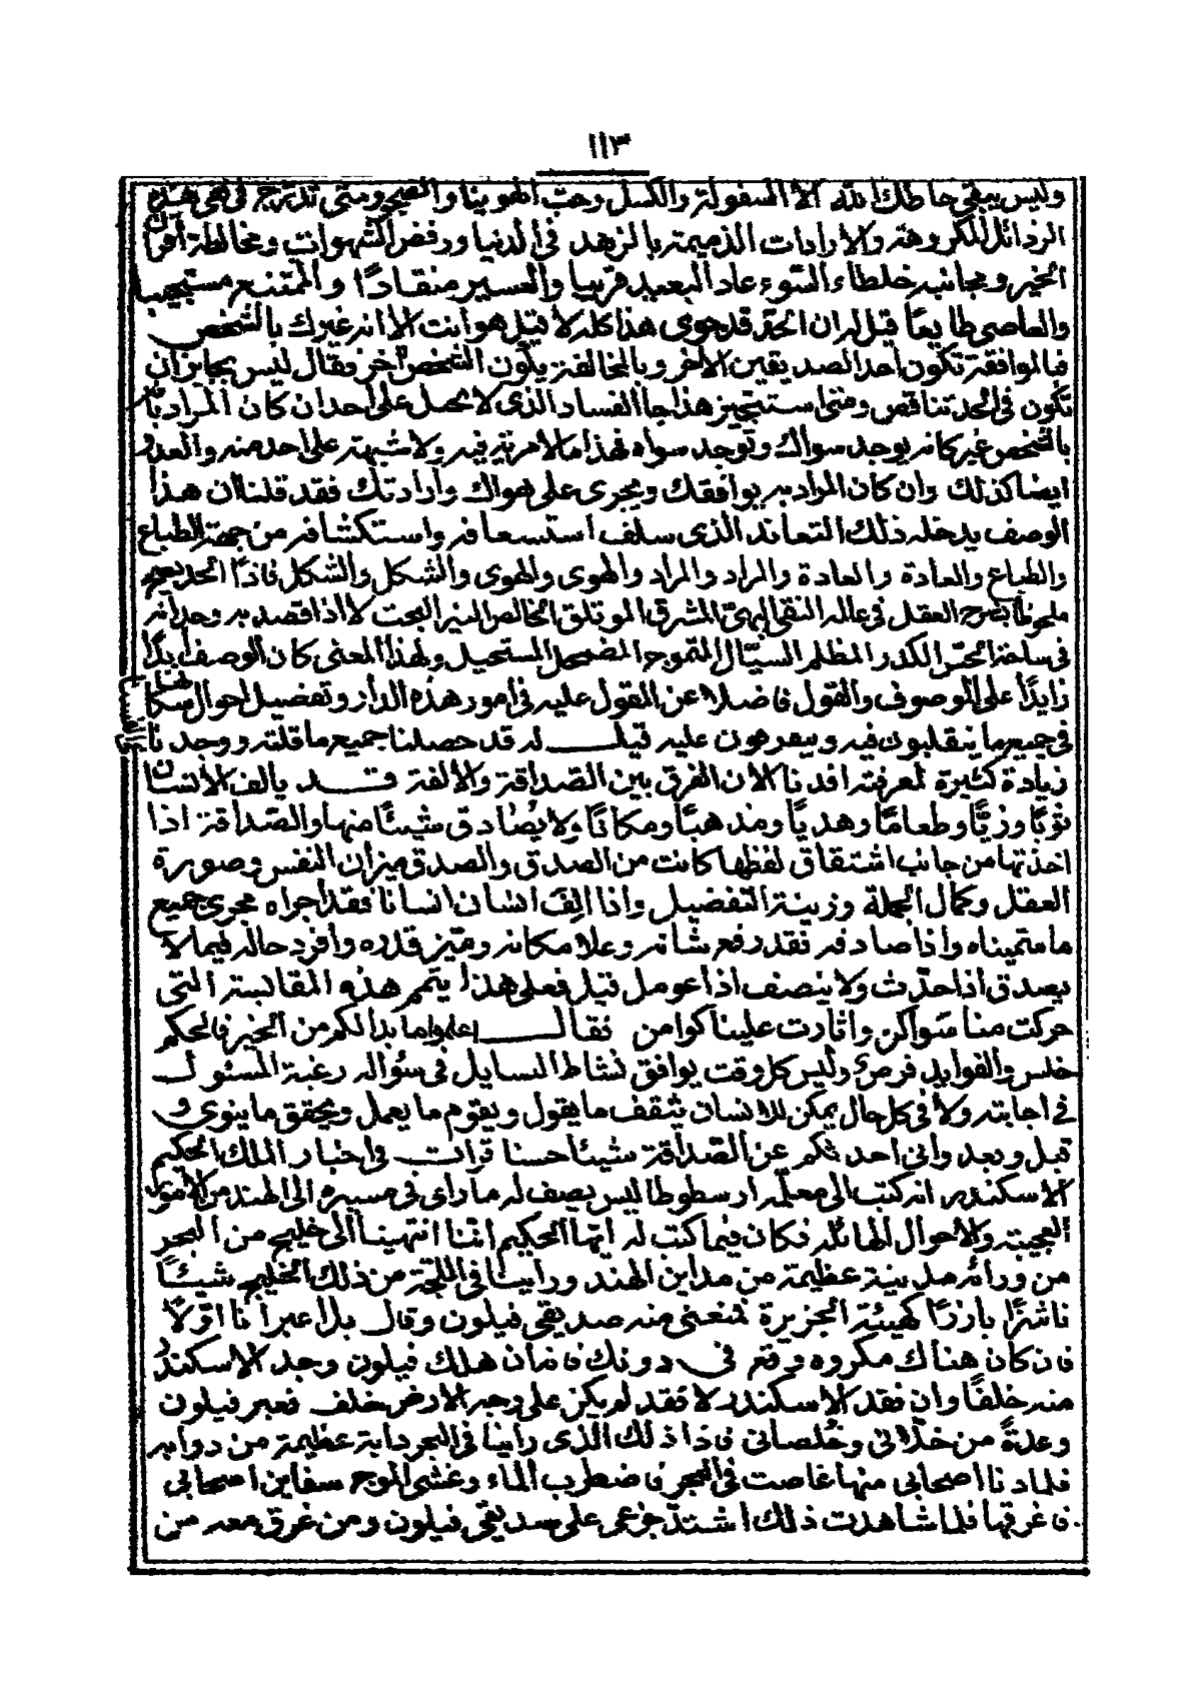 ١١٣
وليس يبقى حاطك الله الا السفولة والكسل وحب الهوينا و ومتى تدرج في نفى هذه
الرذائل المكروهة والارادات الذميمة بالزهد في الدنيا ورفض الشهوات ومخالطة
الخير ومجانبة خلطاء السوء عاد البعيد قريبا والعسير منقادًا والممتنع مستجيبا
والعاصى طايعًا قيل له ان الحد قد حوى هذا كله لا قيل هو انت الا انه غيرك بالشخص
فبالموافقة تكون احد الصديقين الاخر وبالمخالفة يكون الشخص اخر فقال ليس بجايز ان
تكون في الحد تناقص ومتى استجيز هذا جا الفساد الذى لا يحمل على احد ان كان المراد
بالشخص غير كانه يوجد سواك وتوجد سواه فهذا ما لا مرية فيه ولا شبهة على احد منه والعدو
ايضا كذلك وان كان المراد به يوافقك ويجرى على هواك وارادتك فقد قلنا ان هذا
الوصف يدخله ذلك التعاند الذى سلف استسعافه واستكشافه من جهة الطباع
والطباع والعادة والعادة والمراد والمراد والهوى والهوى والشكل والشكل فاذًا الحد
ملحوظ العقل في عالمه النقى البهى المشرق المونق الخالص النير البحت لا اذا قصد به وجدانه
في ساحة الحس الكدر المظلم السيّال المتموج المضمحل المستحيل ولهذا المعنى كان الوصف ابدًا
زايدًا على الموصوف والقول فاضلا عن المقول عليه في امور هذه الدار وتفضيل احوال سكانها
في جميع ما ينقلبون فيه ويعرجون عليه قيل له قد حصلنا جميع ما قلته ووجدنا
زيادة كثيرة لمعرفته افدنا الان الفرق بين الصداقة والالفة قد يالف الانسان
ثوبًا وزيًّا وطعامًا وهديًا ومذهبًا ومكانًا ولا يصادق شيئًا منها والصداقة اذا
اخذتها من جانب اشتقاق لفظها كانت من الصدق والصدق ميزان النفس وصورة
العقل وكمال الجملة وزينة التفضيل واذا الف انسان انسانا فقد اجراه مجرى جميع
ما سميناه واذا صادفه فقد رفع شانه وعلا مكانه وميز قدره وافرد حاله فيما لا
يصدق اذا حدّث ولا ينصف اذا عومل قيل فعلى هذا يتم هذه المقابسة التى
حركت منا سواكن واثارت علينا كوامن فقال اعلموا ما بدا لكم من الخير فالحكم
خلس والفوايد فرص وليس كل وقت يوافق نشاط السايل في سؤاله رغبة المسئول
في اجابته ولا في كل حال يمكن للانسان يثقف ما يقول ويقوم ما يعمل ويحقق ما ينوى و
قبل وبعد وانى احدثكم عن الصداقة شيئا حسنا قرات في اخبار الملك الحكيم
الاسكندر انه كتب الى معلمه ارسطوطاليس يصف له ما راى في مسيره الى الهند من الامور
العجيبة والاحوال الهائلة فكان فيما كتب له ايها الحكيم اننا انتهينا الى خليج من البحر
من ورائه مدينة عظيمة من مداين الهند وراينا في اللجة من ذلك الخليج شيئًا
ناشزًا بارزًا كهيئة الجزيرة فمنعنى منه صديقى فيلون وقال بل اعبر انا اوّلًا
فان كان هناك مكروه وقع في دونك فانه ان هلك فيلون وجد الاسكندر
منه خلفًا وان فقد الاسكندر لا فقد لم يكن على وجه الارض خلف فعبر فيلون
وعدة من خلّانى وخلصانى فاذا ذلك الذى راينا في البحر دابة عظيمة من دوابه
فلما دنا اصحابى منها غاصت في البحر فاضطرب الماء وغشى الموج سفاين اصحابى
فاغرقها فلما شاهدت ذلك اشتد جزعى على صديقى فيلون ومن غرق معه من